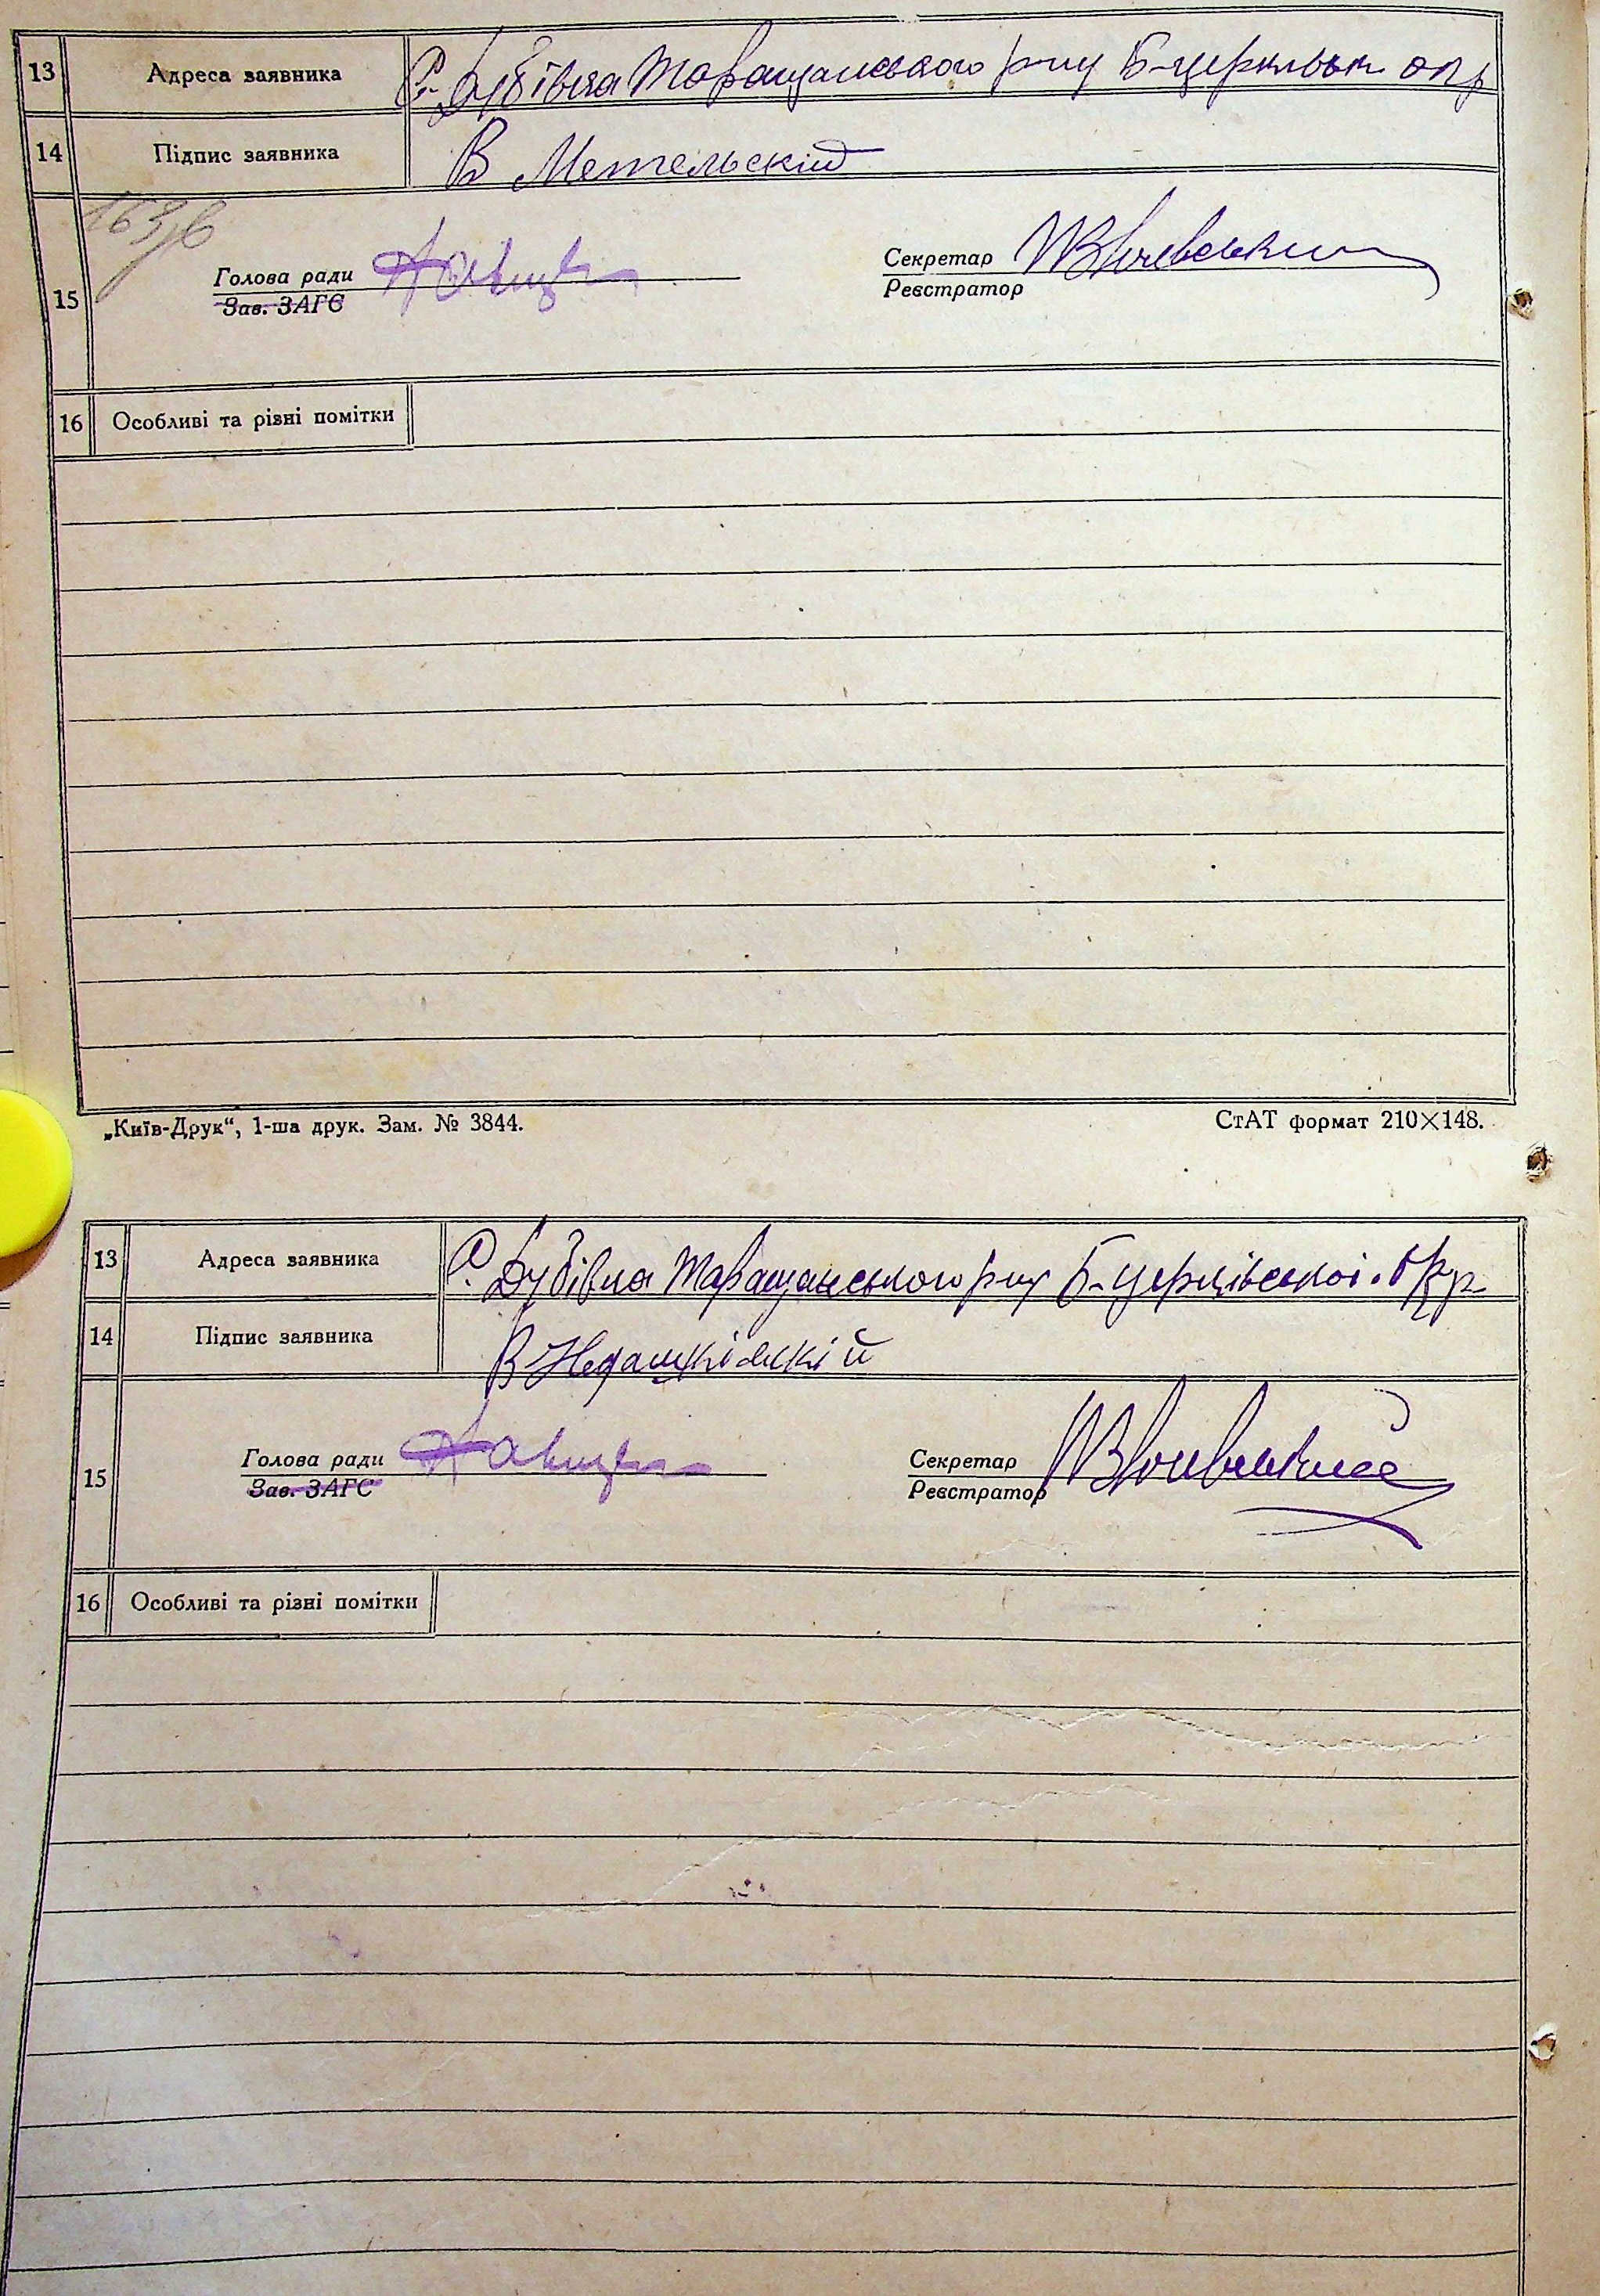 13 Адреса заявника С. Дубівка Таращанського р-ну Б-церківськ. окр
14 Підпис заявника В Метельскій
15
Голова ради
Зав. ЗАГС
Секретар
Реєстратор
16 Особливі та різні помітки
„Київ-Друк“, 1-ша друк. Зам. № 3844.
СтАТ формат 210×148.
13 Адреса заявника С. Дубівка Таращанського р-ну Б-церківської. Окр.
14 Підпис заявника В
15
Голова ради
Зав. ЗАГС
Секретар
Реєстратор
16 Особливі та різні помітки